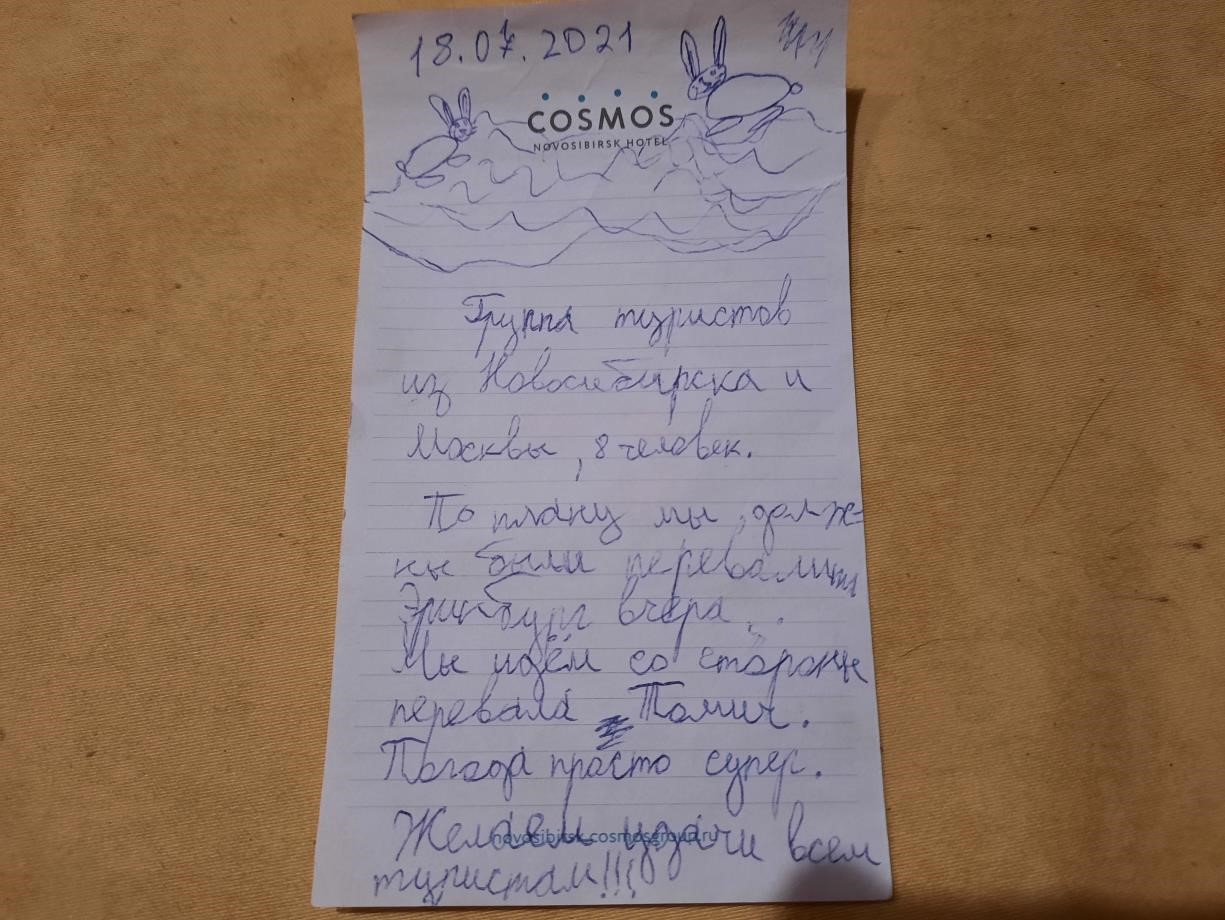 18.07.2021
COSMOS
NOVOSIBIRSK HOTEL
Группа туристов
из Новосибирска и
Москвы, 8 человек.
По плану мы долж-
ны были перевалить
вчера...
Мы идём со стороны
перевала Томич.
Погода просто супер.
Желаем удачи всем
novosibirsk.cosmosgroup.ru
туристам!!!